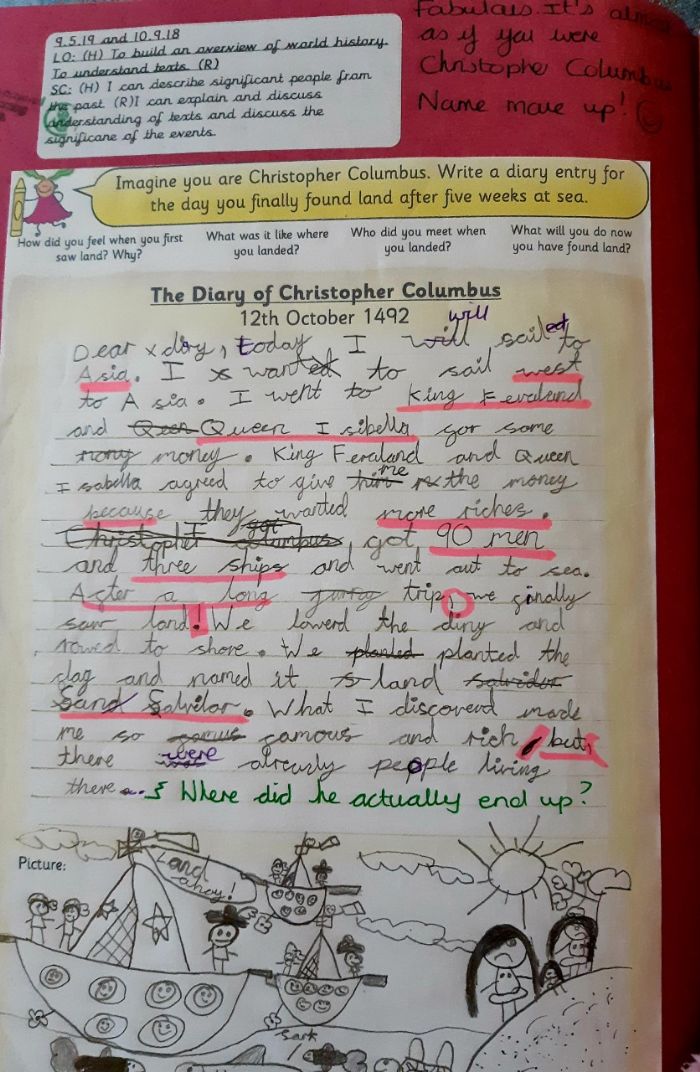 9.5.19 and 10.9.18
LO: (H) To build an overview of world history.
To understand texts. (R)
SC: (H) I can describe significant people from
the past (R)I can explain and discuss
understanding of texts and discuss the
significane of the events.
Fabulous. It's almost
as if you were
Christopher Columbus
Name move up!
Imagine you are Christopher Columbus. Write a diary entry for
the day you finally found land after five weeks at sea.
How did you feel when you first
saw land? Why?
What was it like where
you landed?
Who did you meet when
you landed?
What will you do now
you have found land?
The Diary of Christopher Columbus
12th October 1492
will
Dear x diry, today I will sailed to
Asia. I wanted to sail west
to Asia. I went to King Feraland
and Queen Queen Isibella gor some
mony money. King Feraland and Queen
Isabella agreed to give him me the money
because they wanted more riches.
Christopher Columbus, I got got 90 men
and three ships and went out to sea.
After a long trip, we finally
saw land! We lowerd the diny and
rowed to shore. We planted planted the
flag and named it land
Sand Salvilor. What I discoverd made
me so famous and rich, but,
there were alrerdy people living
there... Where did he actually end up?
Picture:
Land
ahoy!